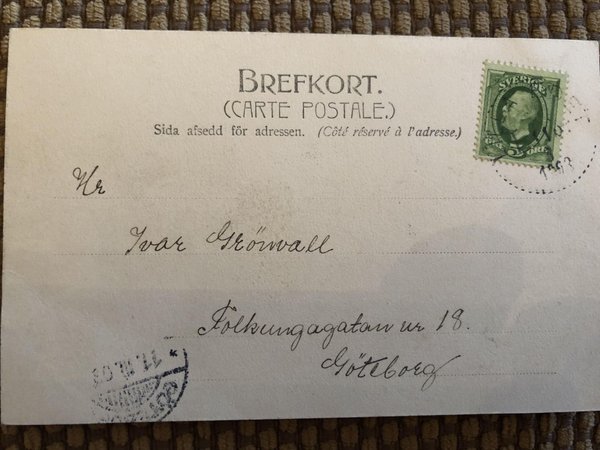 BREFKORT.
(CARTE POSTALE.)
Sida afsedd för adressen. (Côté réservé à l'adresse.)
SVERIGE
5 ÖRE
1903
Hr
Ivar Grönvall
Folkungagatan nr 18.
Göteborg